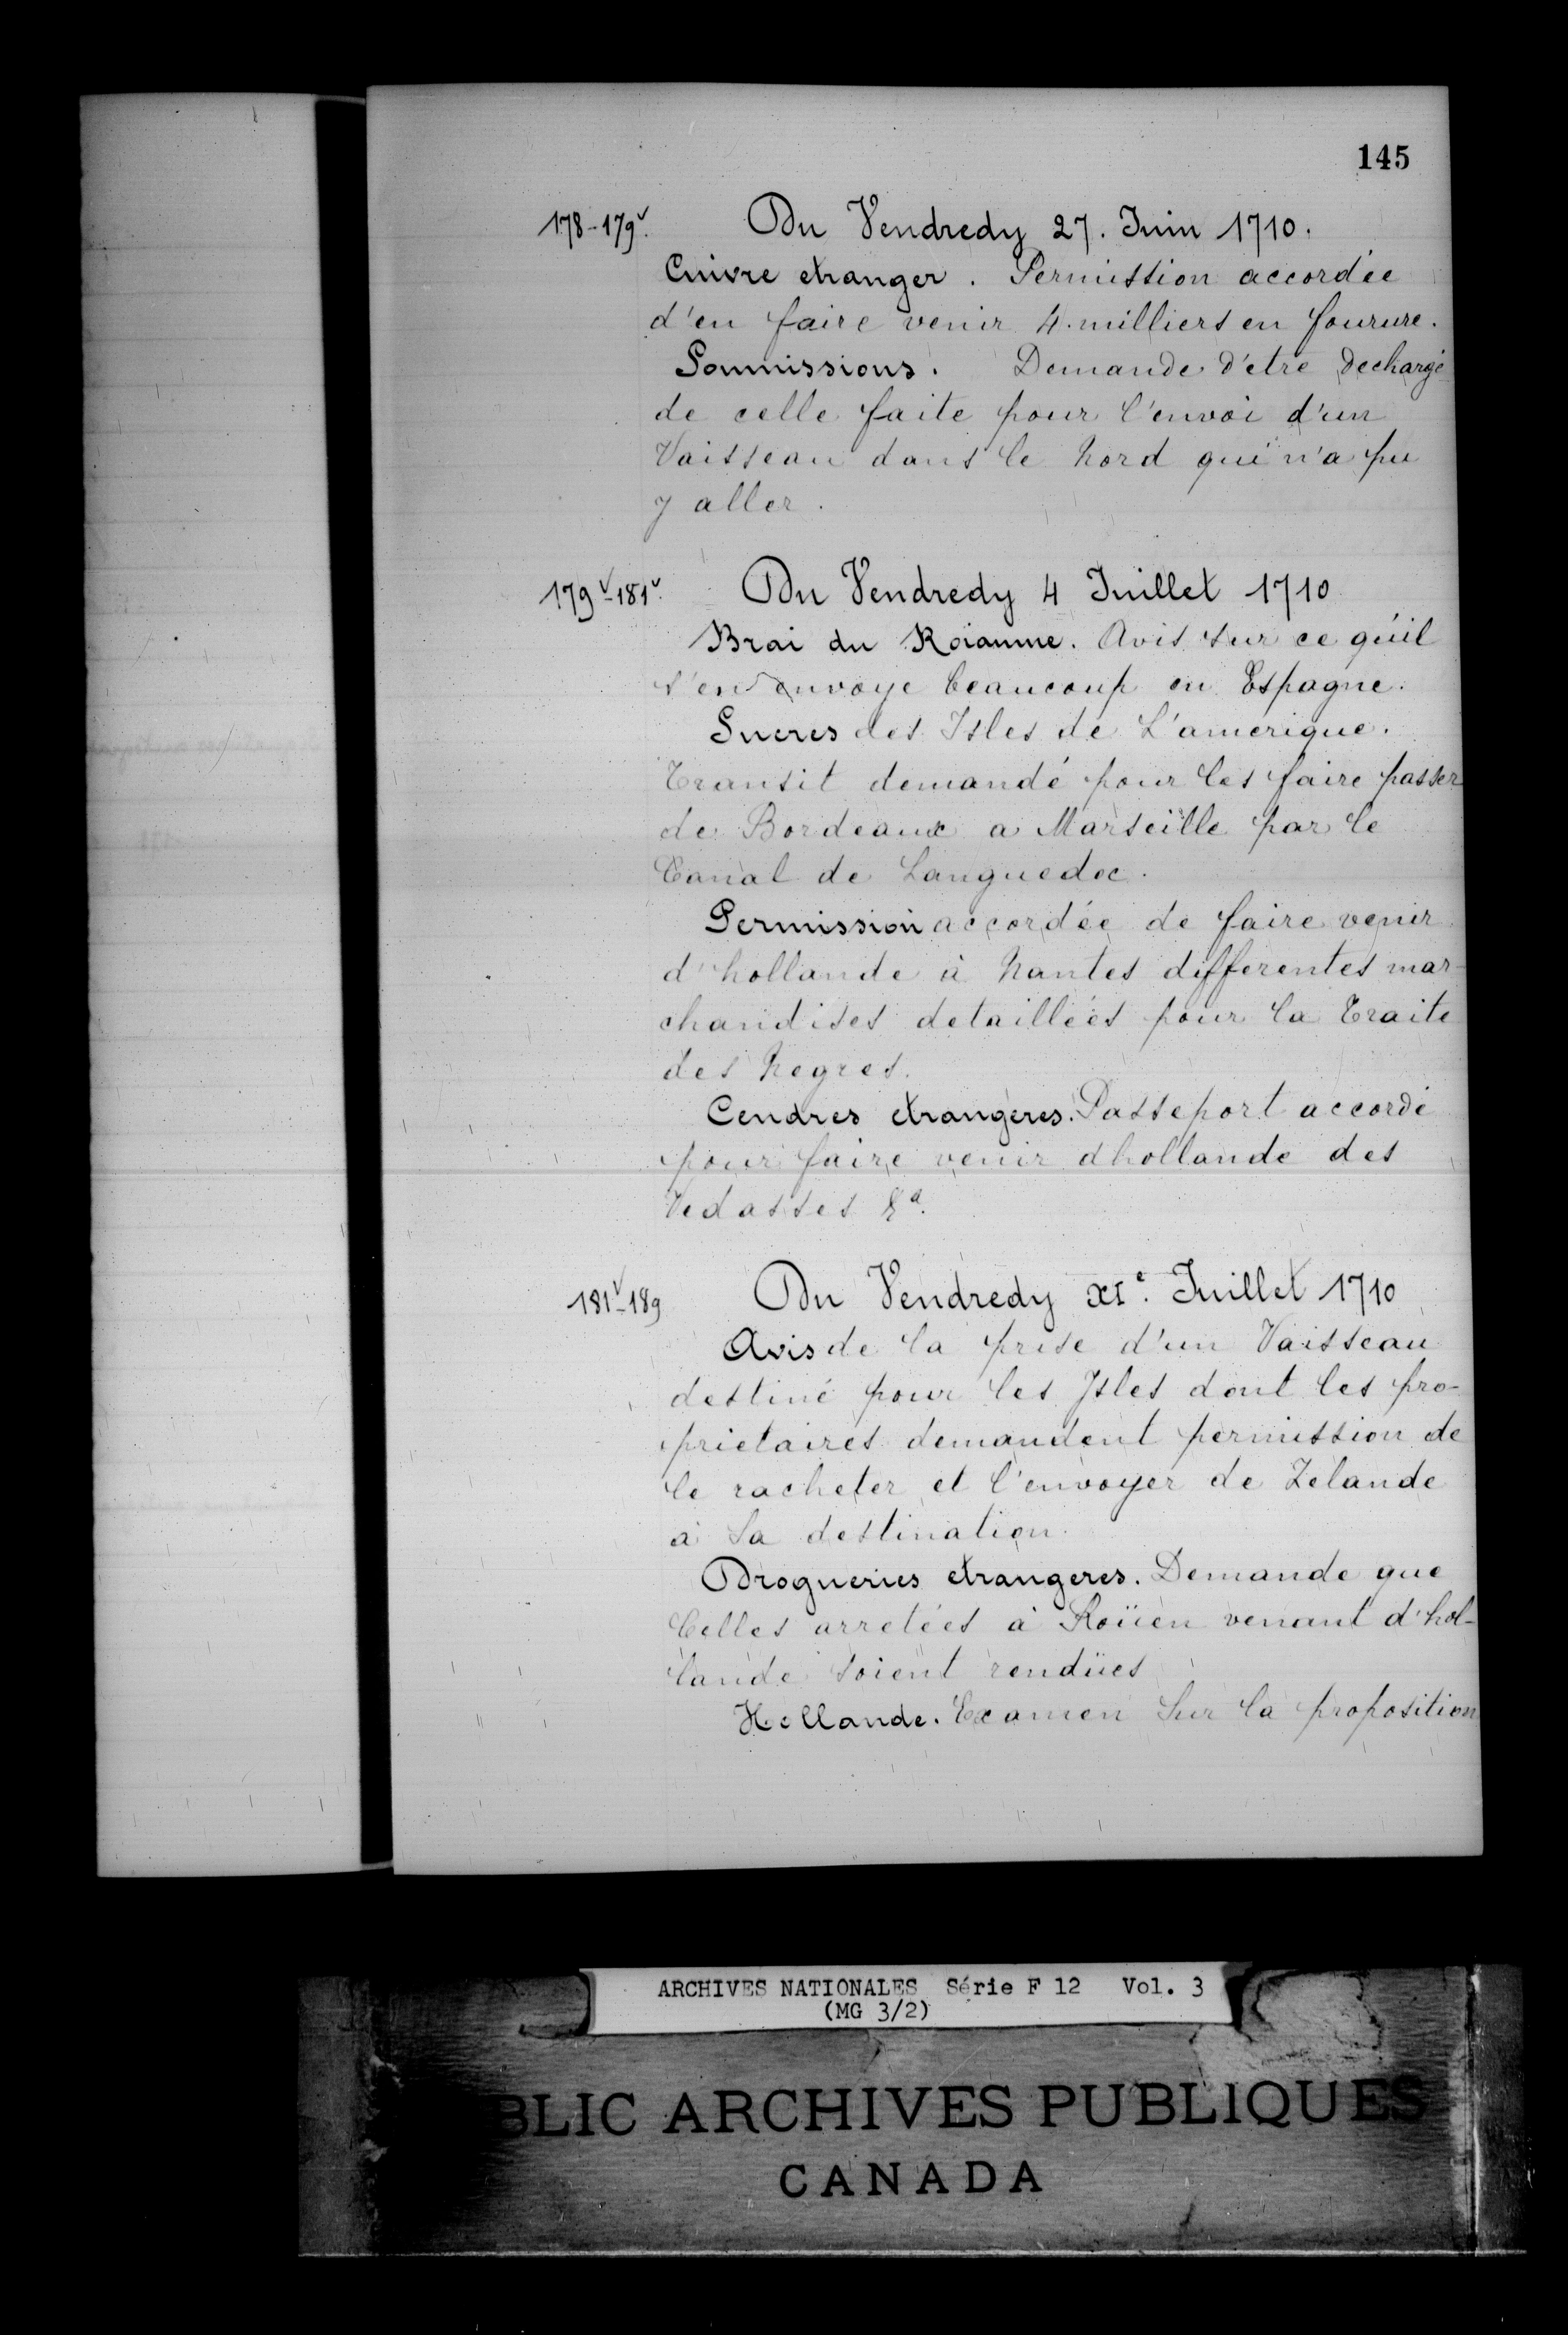 145
178-179v. Du Vendredy 27. Juin 1710.
Cuivre etranger. Permission accordée
d'en faire venir 4. milliers en fourure.
Soumissions. Demande d'etre dechargé
de celle faite pour l'envoi d'un
Vaisseau dans le Nord qui n'a pu
y aller.
179v-181v. Du Vendredy 4 Juillet 1710
Brai du Roiaume. Avis sur ce qu'il
s'en envoye beaucoup en Espagne.
Sucres des Isles de L'amerique.
Transit demandé pour les faire passer
de Bordeaux a Marseille par le
Canal de Languedoc.
Permission accordée de faire venir
d'hollande à Nantes differentes mar-
chandises detaillées pour la Traite
des Negres.
Cendres etrangeres. Passeport accordé
pour faire venir dhollande des
Vedasses &a.
181v-189 Du Vendredy XIe. Juillet 1710
Avis de la prise d'un Vaisseau
destiné pour les Isles dont les pro-
prietaires demandent permission de
le racheter et l'envoyer de Zelande
à Sa destination.
Drogueries etrangeres. Demande que
Celles arretées à Roüen venant d'hol-
lande soient rendües
Hollande. Examen Sur la proposition
ARCHIVES NATIONALES Série F 12 Vol. 3
(MG 3/2)
BLIC ARCHIVES PUBLIQUES
CANADA